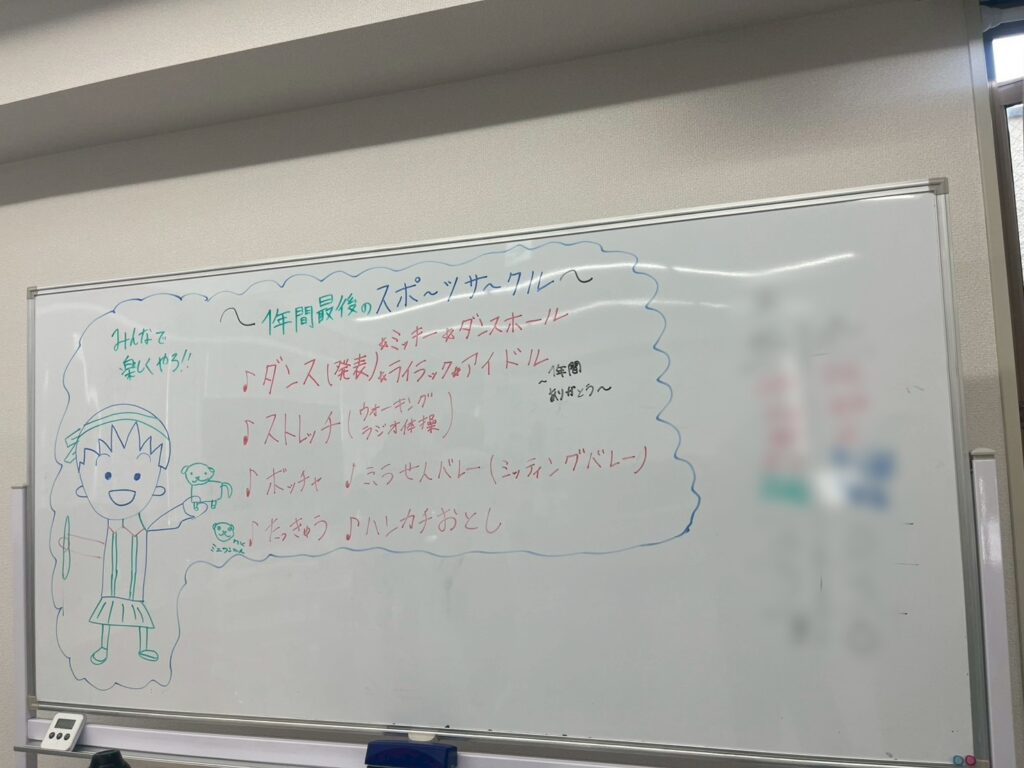 みんなで
楽しくやろ!!
～1年間最後のスポ～ツサ～クル～
☆ミッキー☆ダンスホール
♪ダンス(発表)☆ライラック☆アイドル
～1年間
ありがとう～
♪ストレッチ(ウォーキング
ラジオ体操)
♪ボッチャ ♪ふうせんバレー(ミッティングバレー)
♪たっきゅう ♪ハンカチおとし